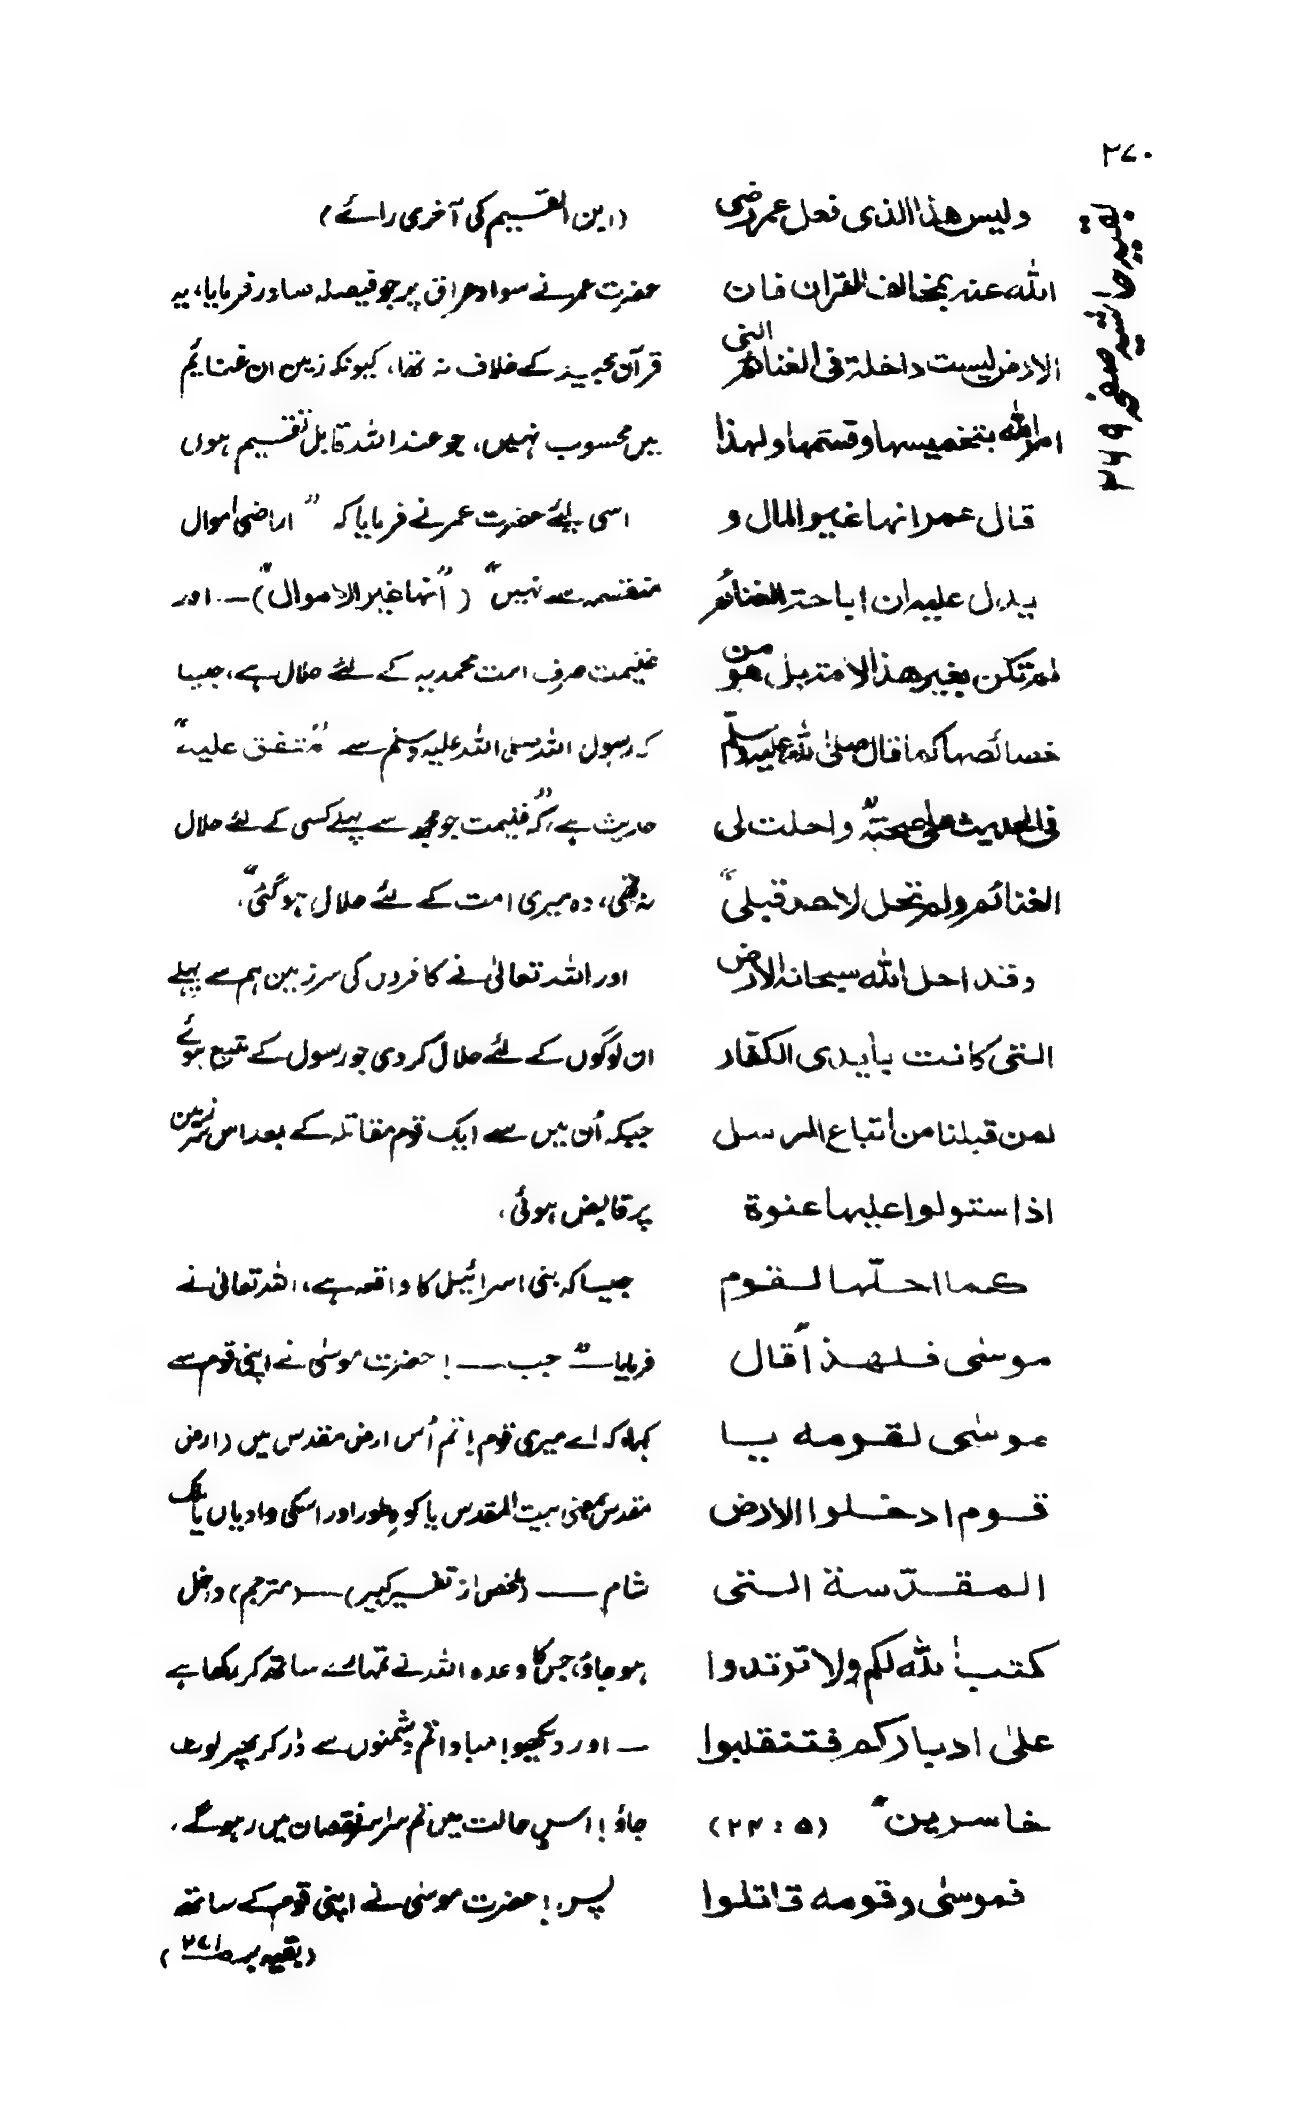 ۲۷۰
بقیہ حاشیہ صفحہ ۲۶۹
ولیس هذا الذی فعل عمر رضی
الله عنه بمخالف القرآن فان
الارض لیست داخلة فی الغنائم التی
امر الله بتخمیسها وقسمتها ولهذا
قال عمر انها غیر المال و
یدل علیه ان اباحة الغنائم
لم تکن بغیر هذا الامة بل هو من
خصائصها کما قال صلی الله علیه وسلم
فی الحدیث علی صحته "واحلت لی
الغنائم ولم تحل لاحد قبلی"
وقد احل الله سبحانه الارض
التی کانت بأیدی الکفار
لمن قبلنا من اتباع الرسل
اذا ستولوا علیها عنوة
کما احلّها لقوم
موسٰی فلهذا قال
موسٰی لقومه "یا
قوم ادخلوا الارض
المقدّسة التی
کتب الله لکم ولا ترتدوا
علٰی ادبارکم فتنقلبوا
خاسرین" (۵ : ۲۴)
فموسٰی وقومه قاتلوا
(ابن القیم کی آخری رائے)
حضرت عمر نے سواد عراق پر جو فیصلہ صادر فرمایا، یہ
قرآن مجید کے خلاف نہ تھا، کیونکہ زمین ان غنایم
میں محسوب نہیں، جو عند اللہ قابل تقسیم ہوں
اسی لئے حضرت عمر نے فرمایا کہ "اراضی اموال
منقسمہ سے نہیں" ("انہا غیر الاموال") — اور
غنیمت صرف امت محمدیہ کے لئے حلال ہے، جیسا
کہ رسول اللہ صلی اللہ علیہ وسلم سے "متفق علیہ"
حدیث ہے، کہ "غنیمت جو مجھ سے پہلے کسی کے لئے حلال
نہ تھی، وہ میری امت کے لئے حلال ہو گئی"۔
اور اللہ تعالیٰ نے کافروں کی سرزمین ہم سے پہلے
ان لوگوں کے لئے حلال کر دی جو رسول کے متبع ہوئے
جبکہ اُن میں سے ایک قوم مقاتلہ کے بعد اس سرزمین
پر قابض ہوئی۔
جیسا کہ بنی اسرائیل کا واقعہ ہے، اللہ تعالیٰ نے
فرمایا — "جب — ! حضرت موسیٰ نے اپنی قوم سے
کہا کہ اے میری قوم! تم اُس ارض مقدس میں (ارض
مقدس بمعنی بیت المقدس یا کوہِ طور اور اسکی وادیاں یا ملک
شام — (ملخص از تفسیر کبیر) — (مترجم) داخل
ہو جاؤ، جس کا وعدہ اللہ نے تمہارے ساتھ کر رکھا ہے
— اور دیکھیو! مبادا تم دشمنوں سے ڈر کر پھر لوٹ
جاؤ! اس حالت میں تم سراسر نقصان میں رہو گے۔
پس! حضرت موسیٰ نے اپنی قوم کے ساتھ
(بقیہ بر صـ ۲۷۱)